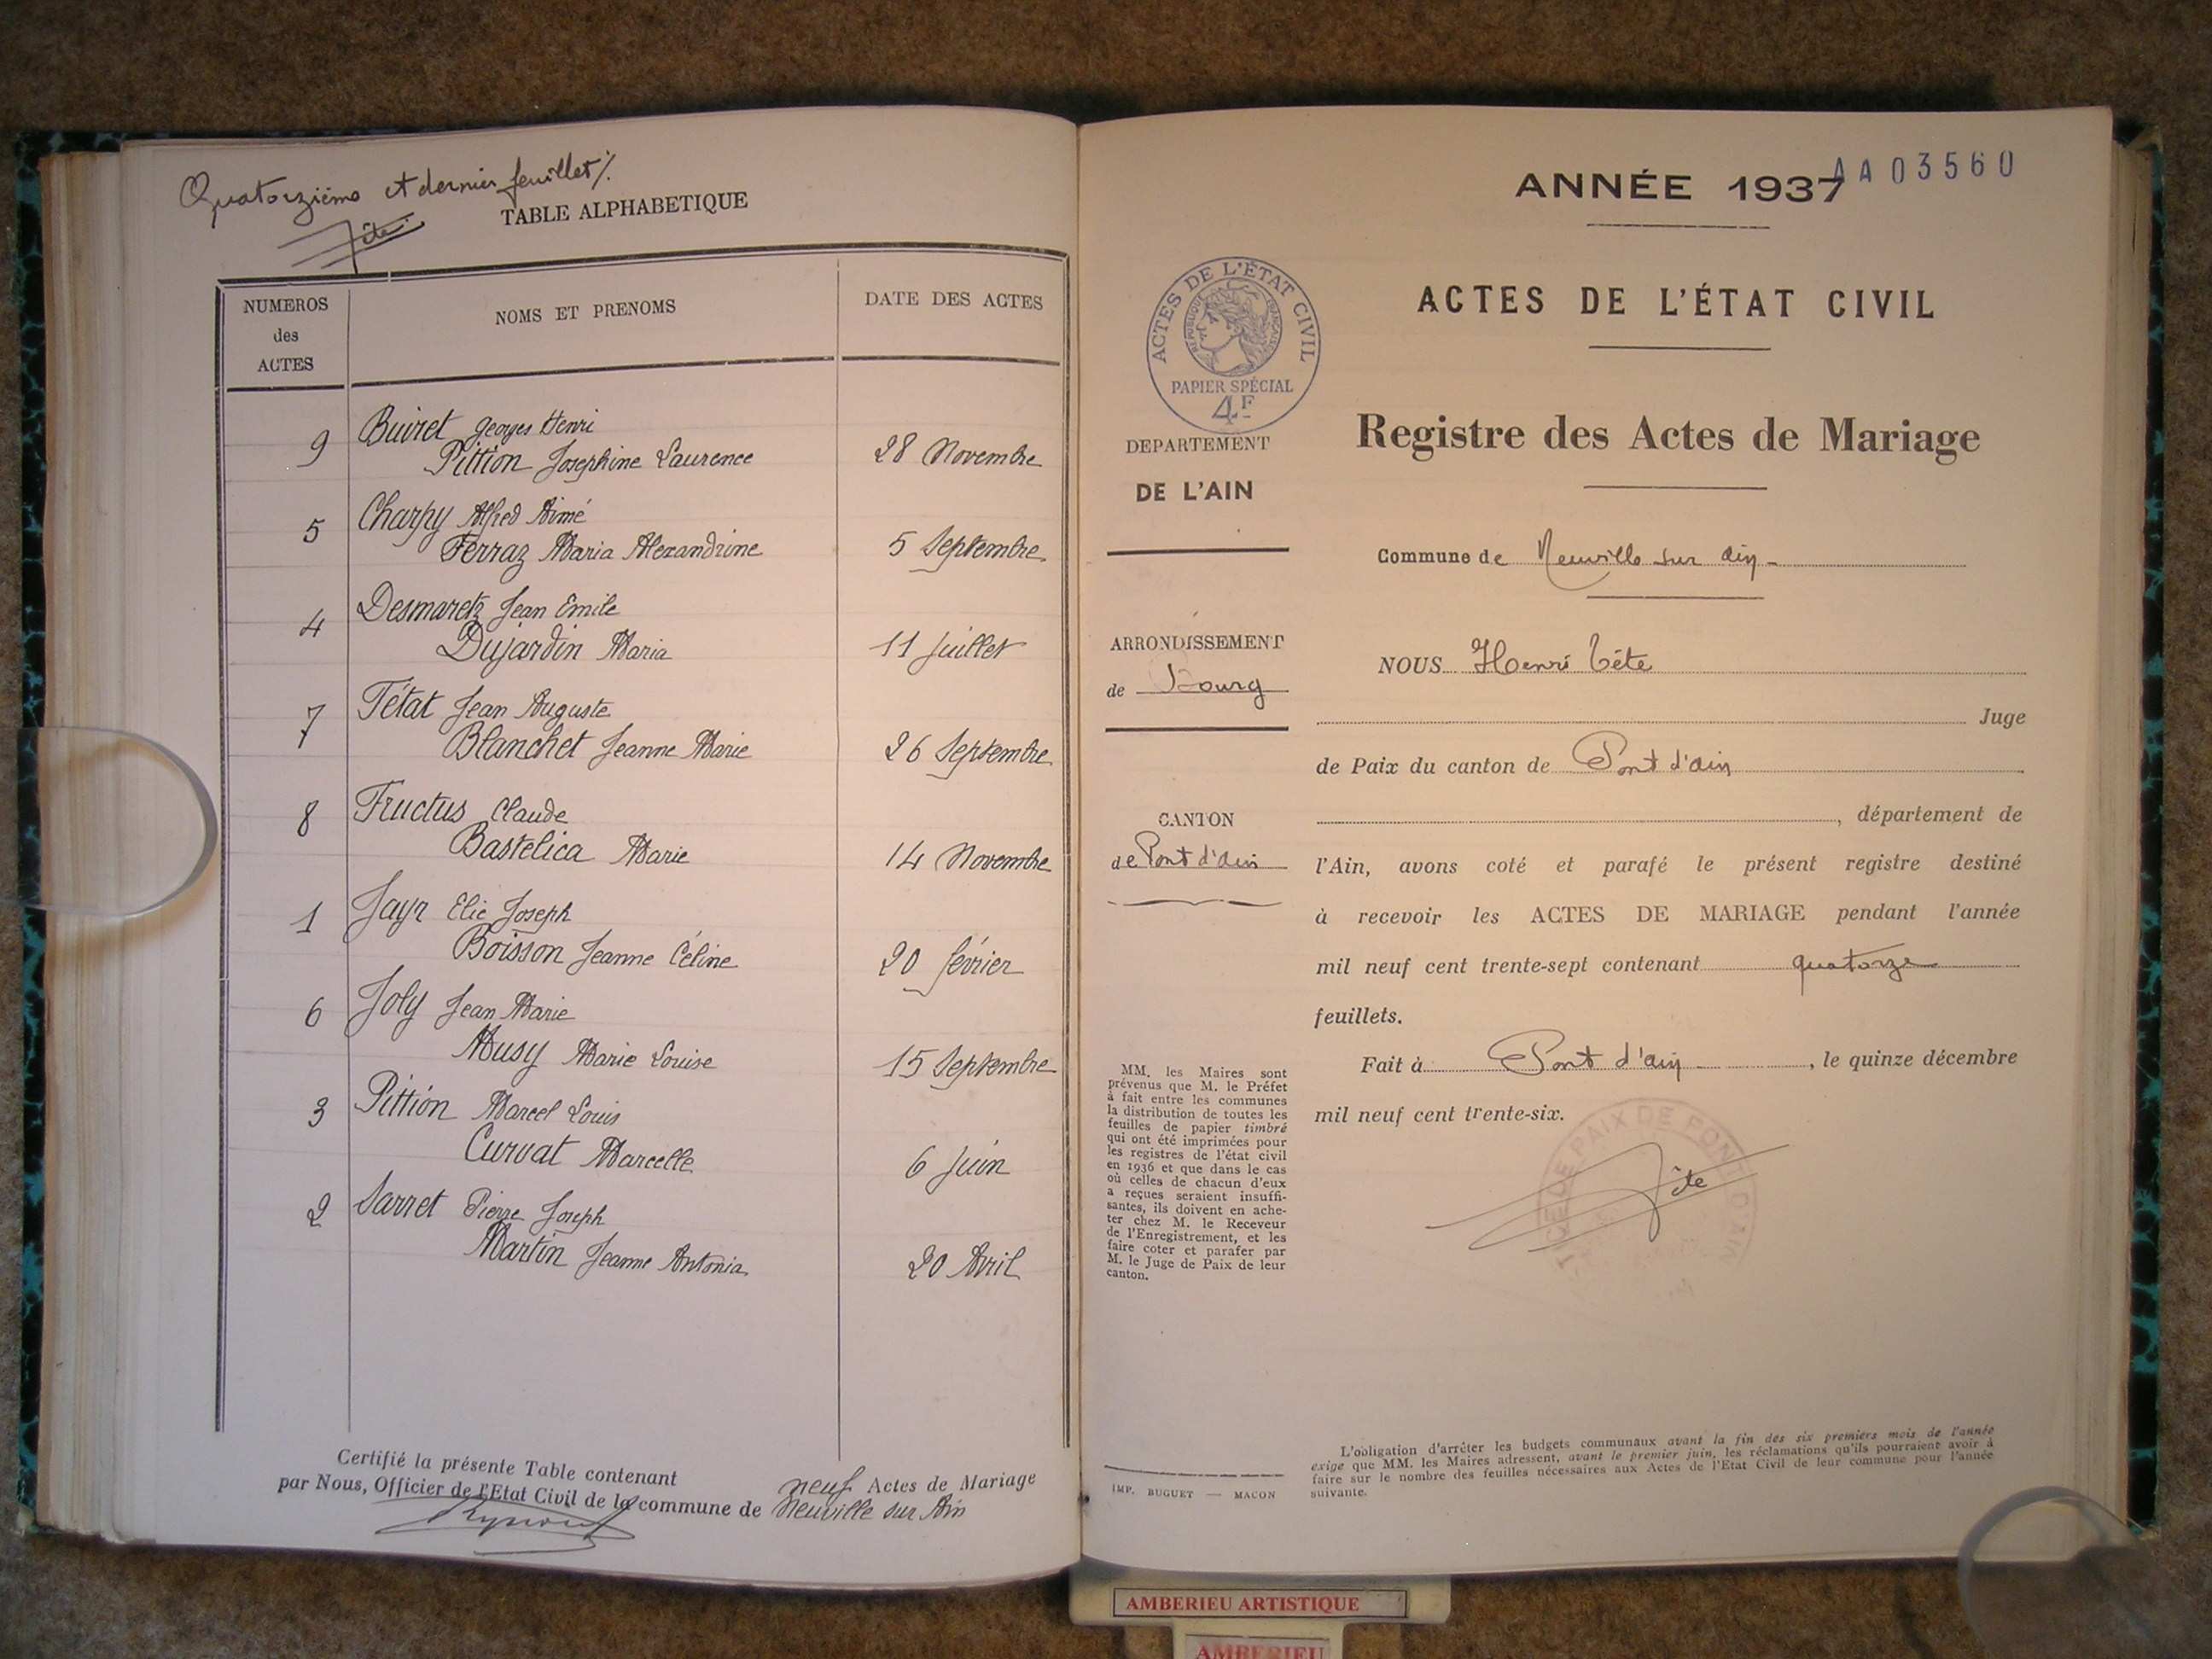 Quatorzième et dernier feuillet /.
Tête
TABLE ALPHABETIQUE
NUMEROS
des
ACTES
NOMS ET PRENOMS
DATE DES ACTES
9 Buiret Georges Henri
Pittion Josephine Laurence 28 Novembre
5 Charpy Alfred Aimé
Ferraz Maria Alexandrine 5 Septembre
4 Desmaretz Jean Emile
Dujardin Maria 11 Juillet
7 Tétat Jean Auguste
Blanchet Jeanne Marie 26 Septembre
8 Fructus Claude
Bastelica Marie 14 Novembre
1 Jayr Elie Joseph
Boisson Jeanne Céline 20 février
6 Joly Jean Marie
Musy Marie Louise 15 Septembre
3 Pittion Marcel Louis
Curvat Marcelle 6 Juin
2 Sarret Pierre Joseph
Martin Jeanne Antonia 20 Avril
Certifié la présente Table contenant neuf Actes de Mariage
par Nous, Officier de l'Etat Civil de la commune de Neuville sur Ain
ANNÉE 1937
AA 03560
ACTES DE L'ÉTAT CIVIL
Registre des Actes de Mariage
ACTES DE L'ÉTAT CIVIL
RÉPUBLIQUE FRANÇAISE
PAPIER SPÉCIAL
4F
DEPARTEMENT
DE L'AIN
ARRONDISSEMENT
de Bourg
CANTON
de Pont d'ain
MM. les Maires sont
prévenus que M. le Préfet
a fait entre les communes
la distribution de toutes les
feuilles de papier timbré
qui ont été imprimées pour
les registres de l'état civil
en 1936 et que dans le cas
où celles de chacun d'eux
a reçues seraient insuffi-
santes, ils doivent en ache-
ter chez M. le Receveur
de l'Enregistrement, et les
faire coter et parafer par
M. le Juge de Paix de leur
canton.
IMP. BUGUET — MACON
Commune de Neuville sur ain
NOUS Henri Tête
Juge
de Paix du canton de Pont d'ain
, département de
l'Ain, avons coté et parafé le présent registre destiné
à recevoir les ACTES DE MARIAGE pendant l'année
mil neuf cent trente-sept contenant quatorze
feuillets.
Fait à Pont d'ain, le quinze décembre
mil neuf cent trente-six.
Tête
L'obligation d'arrêter les budgets communaux avant la fin des six premiers mois de l'année
exige que MM. les Maires adressent, avant le premier juin, les réclamations qu'ils pourraient avoir à
faire sur le nombre des feuilles nécessaires aux Actes de l'Etat Civil de leur commune pour l'année
suivante.
AMBERIEU ARTISTIQUE
AMBERIEU